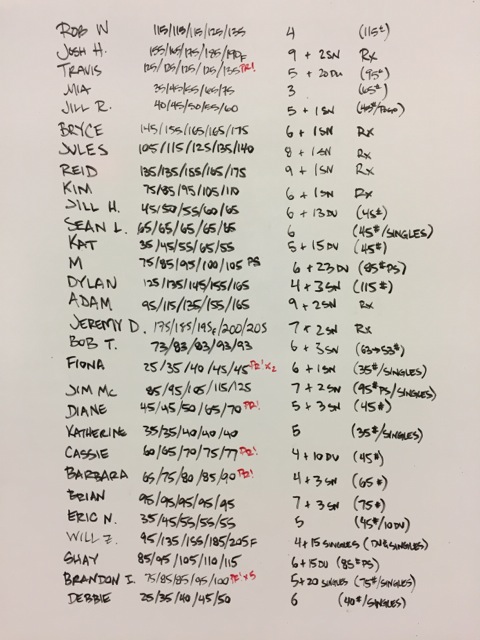 ROB W 115/115/115/125/135 4 (115#)
JOSH H. 155/165/175/185/190F 9 + 2SN Rx
TRAVIS 125/125/125/125/135 PR! 5 + 20DU (95#)
MIA 35/45/55/65/75 3 (65#)
JILL R. 40/45/50/55/60 5 + 1SN
BRYCE 145/155/165/165/175 6 + 1SN Rx
JULES 105/115/125/135/140 8 + 1SN Rx
REID 135/135/155/165/175 9 + 1SN Rx
KIM 75/85/95/105/110 6 + 1SN Rx
JILL H. 45/50/55/60/65 6 + 13DU (45#)
SEAN L. 65/65/65/65/65 6 (45#/SINGLES)
KAT 35/45/55/65/55 5 + 15DU (45#)
M 75/85/95/100/105 PS 6 + 23DU (85#PS)
DYLAN 125/135/145/155/165 4 + 3SN (115#)
ADAM 95/115/135/155/165 9 + 2SN Rx
JEREMY D. 175/185/195F/200/205 7 + 2SN Rx
BOB T. 73/83/83/93/93 6 + 3SN (63→53#)
FIONA 25/35/40/45/45 PR! x2 6 + 1SN (35#/SINGLES)
JIM MC 85/95/105/115/125 7 + 2SN (95#PS/SINGLES)
DIANE 45/45/50/65/70 PR! 5 + 3SN (45#)
KATHERINE 35/35/40/40/40 5 (35#/SINGLES)
CASSIE 60/65/70/75/77 PR! 4 + 10DU (45#)
BARBARA 65/75/80/85/90 PR! 4 + 3SN (65#)
BRIAN 95/95/95/95/95 7 + 3SN (75#)
ERIC N. 35/45/55/55/55 5 (45#/10DU)
WILL Z. 95/135/155/185/205F 4+15 SINGLES (DU&SINGLES)
SHAY 85/95/105/110/115 6+15DU (85#PS)
BRANDON I. 75/85/85/95/100 PR! x5 5+20 SINGLES (75#/SINGLES)
DEBBIE 25/35/40/45/50 6 (40#/SINGLES)